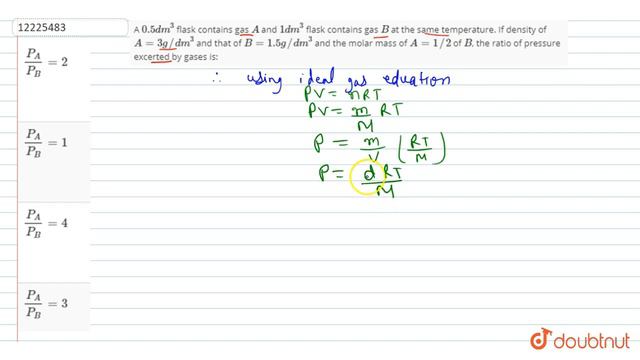 12225483
A 0.5dm³ flask contains gas A and 1dm³ flask contains gas B at the same temperature. If density of
A = 3g/dm³ and that of B = 1.5g/dm³ and the molar mass of A = 1/2 of B, the ratio of pressure
excerted by gases is:
P_A/P_B = 2
P_A/P_B = 1
P_A/P_B = 4
P_A/P_B = 3
∴ using ideal gas equation
PV = nRT
PV = m/M RT
P = m/V (RT/M)
P = dRT/M
doubtnut